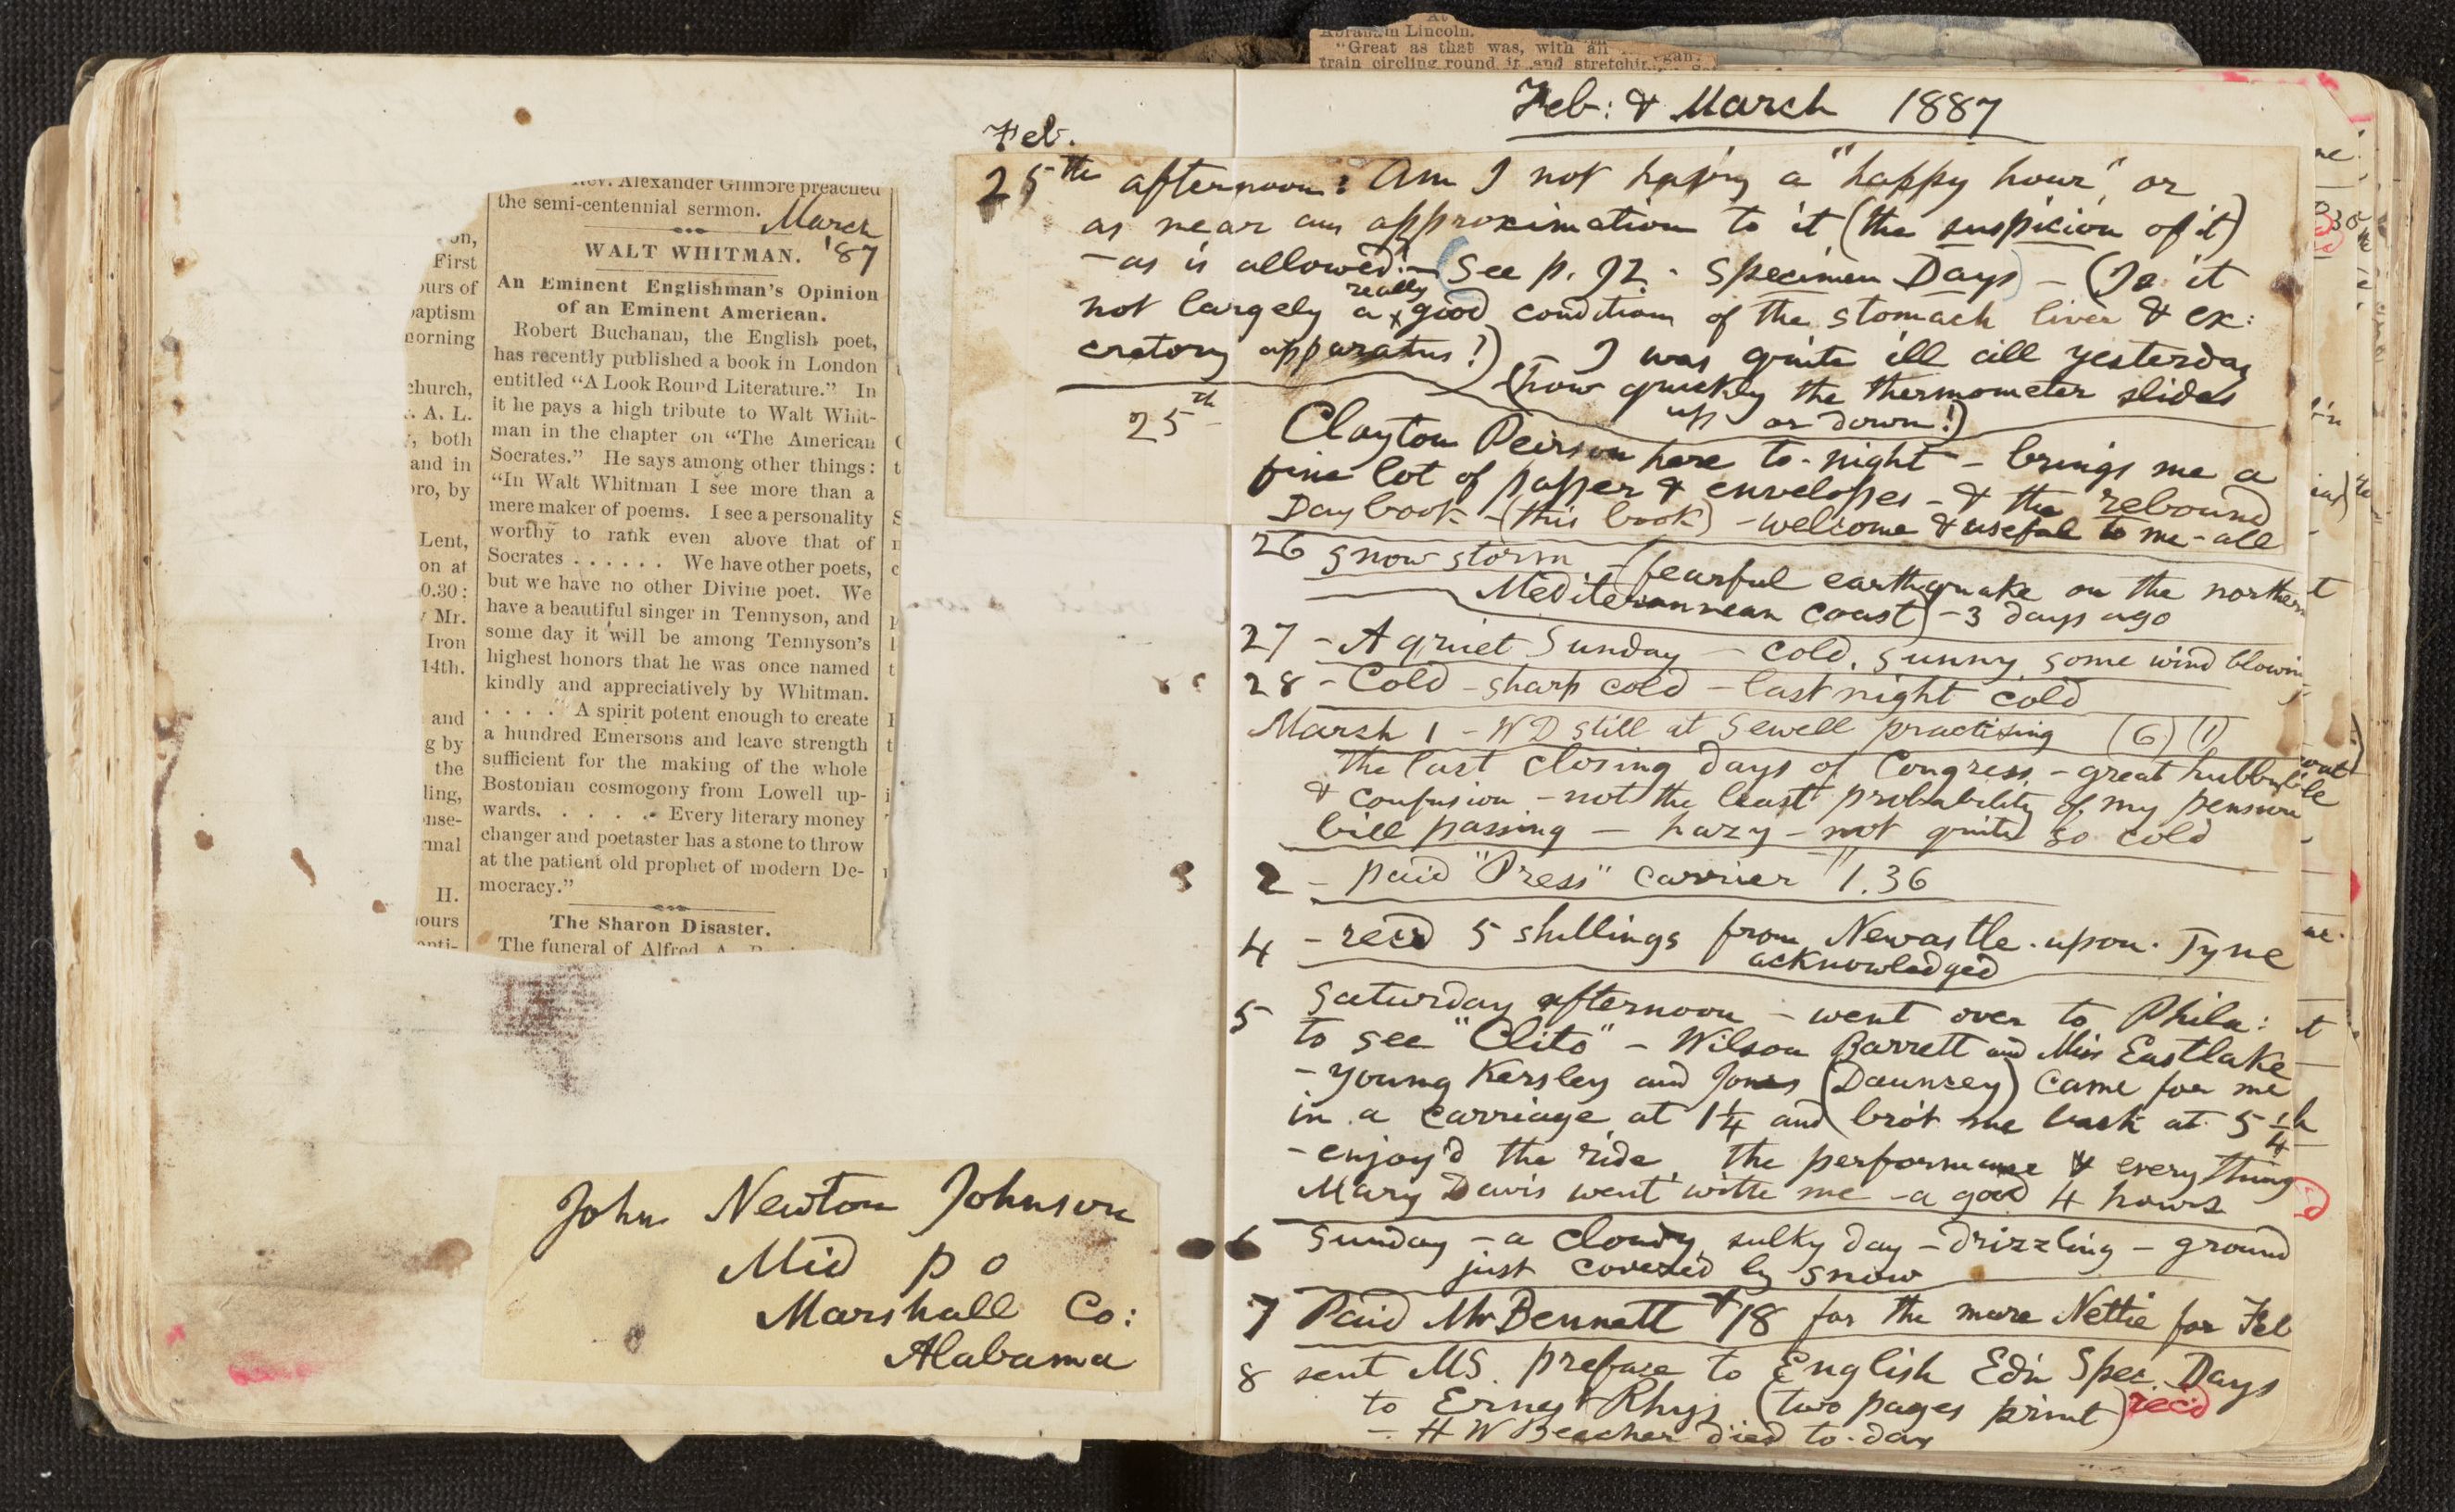 At
Abraham Lincoln.
"Great as that was, with all
train circling round it and
Rev. Alexander Gilmore preached
the semi-centennial sermon.
March
'87
WALT WHITMAN.
An Eminent Englishman's Opinion
of an Eminent American.
Robert Buchanan, the English poet,
has recently published a book in London
entitled "A Look Round Literature." In
it he pays a high tribute to Walt Whit-
man in the chapter on "The American
Socrates." He says among other things:
"In Walt Whitman I see more than a
mere maker of poems. I see a personality
worthy to rank even above that of
Socrates . . . . . . We have other poets,
but we have no other Divine poet. We
have a beautiful singer in Tennyson, and
some day it will be among Tennyson's
highest honors that he was once named
kindly and appreciatively by Whitman.
. . . . A spirit potent enough to create
a hundred Emersons and leave strength
sufficient for the making of the whole
Bostonian cosmogony from Lowell up-
wards. . . . . . Every literary money
changer and poetaster has a stone to throw
at the patient old prophet of modern De-
mocracy."
The Sharon Disaster.
The funeral of Alfred A.
on,
First
ours of
baptism
morning
church,
. A. L.
, both
and in
oro, by
Lent,
on at
0.30:
Mr.
Iron
14th.
and
g by
the
ling,
nse-
rmal
II.
ours
John Newton Johnson
Mid p o
Marshall Co:
Alabama
Feb: & March 1887
Feb.
25th afternoon: Am I not having a "happy hour", or
as near an approximation to it (the suspicion of it)
- as is allowed? - (See p. 92 - Specimen Days) - (Is it
not largely a really good condition of the stomach liver & ex:
cretory apparatus?) - I was quite ill all yesterday
(how quickly the thermometer slides
up or down!)
25th - Clayton Peirson here to-night - brings me a
fine lot of paper & envelopes - & the rebound
Day book - (this book) - welcome & useful to me - all
26 snow storm - (fearful earthquake on the northern
Mediterannean coast) - 3 days ago
27 - A quiet Sunday - cold, sunny, some wind blowing
28 - Cold - sharp cold - last night cold
Marsh 1 - WD still at Sewell practising (6) (1)
the last closing days of Congress - great hubbub
& confusion - not the least probability of my pension
bill passing - hazy - not quite so cold
2 - paid "Press" carrier 1.36
4 - recd 5 shillings from Newastle-upon-Tyne
acknowledged
5 Saturday afternoon - went over to Phila:
to see "Clito" - Wilson Barrett and Miss Eastlake
- young Kersley and Jones (Daunsey) came for me
in a carriage at 1¼ and bro't me back at 5¼
- enjoy'd the ride, the performance & every thing
Mary Davis went with me - a good 4 hours
6 Sunday - a cloudy, sulky day - drizzling - ground
just covered by snow
7 Paid Mr Bennett $18 for the mare Nettie for Feb
8 sent MS. preface to English Ed'n Spec. Days
to Ernest Rhys (two pages print) rec'd
- H W Beecher died to-day